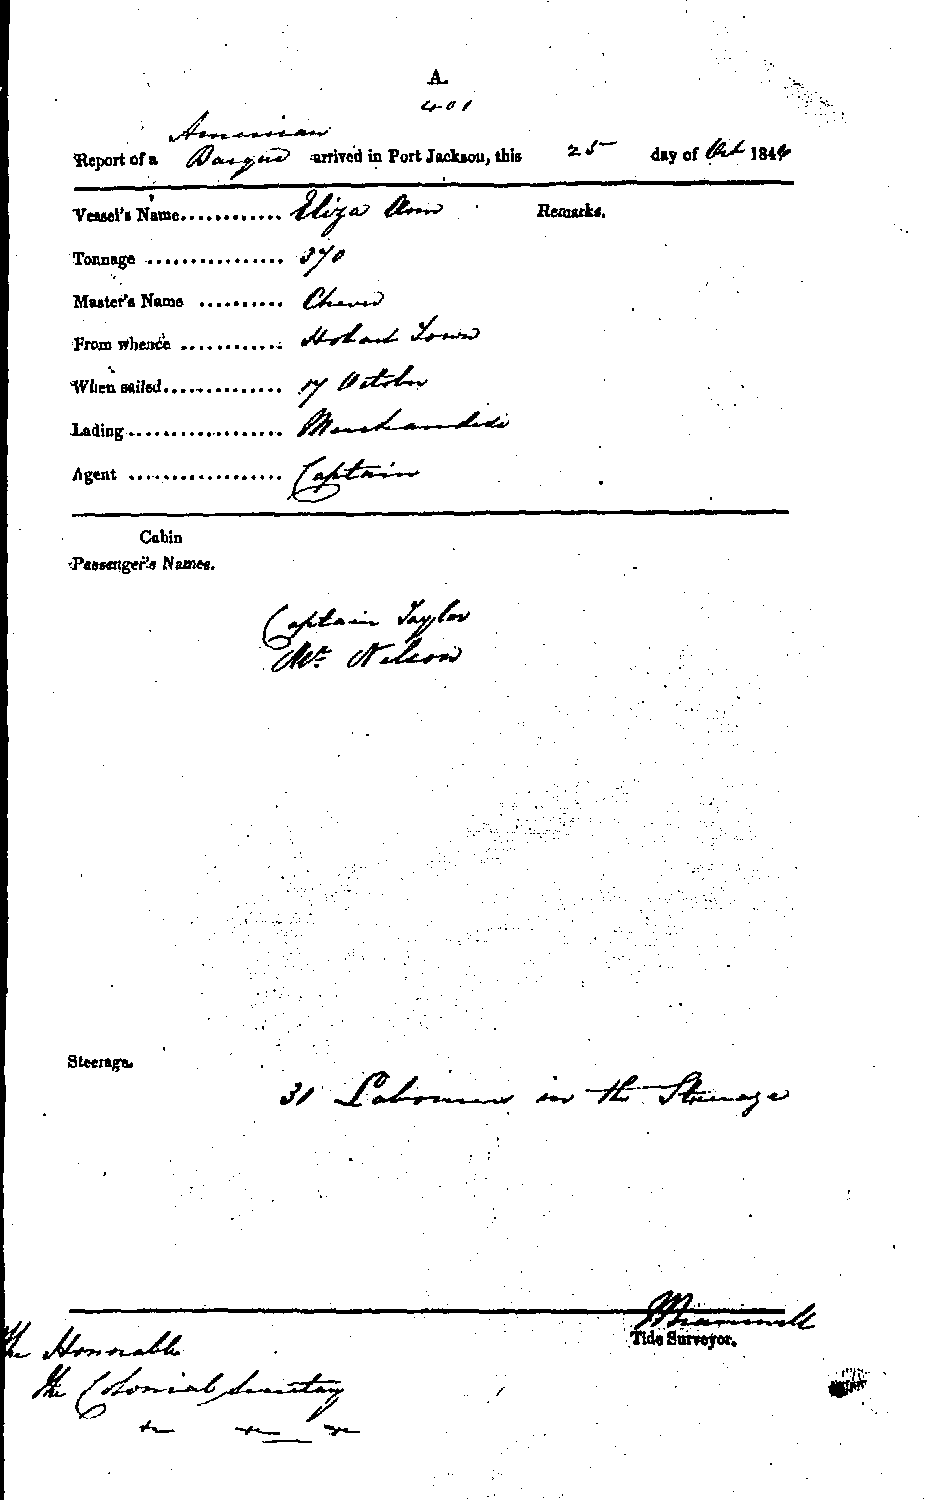 A.
401
American
Report of a Barque arrived in Port Jackson, this 25 day of Oct 184
Vessel's Name............ Eliza Ann Remarks.
Tonnage ................ 370
Master's Name ..........
From whence ............ Hobart Town
When sailed.............. 17 October
Lading.................. Merchandise
Agent .................. Captain
Cabin
Passenger's Names.
Captain Taylor
Mr Nelson
Steerage.
31 Labourers in the Steerage
Tide Surveyor.
The Honorable
The Colonial Secretary